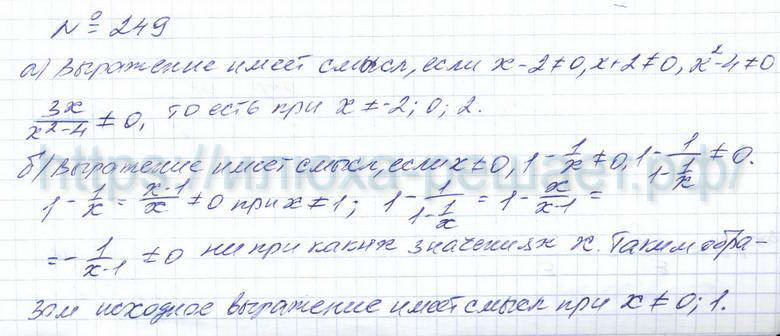 № 249
а) Выражение имеет смысл, если x-2≠0, x+2≠0, x²-4≠0
3x/(x²-4) ≠ 0, то есть при x ≠ -2; 0; 2.
б) Выражение имеет смысл, если x≠0, 1 - 1/x ≠ 0, 1 - 1/(1 - 1/x) ≠ 0.
https://илюха-решает.рф/
1 - 1/x = (x-1)/x ≠ 0 при x ≠ 1; 1 - 1/(1 - 1/x) = 1 - x/(x-1) =
= - 1/(x-1) ≠ 0 ни при каких значениях x. Таким обра-
зом исходное выражение имеет смысл при x ≠ 0; 1.